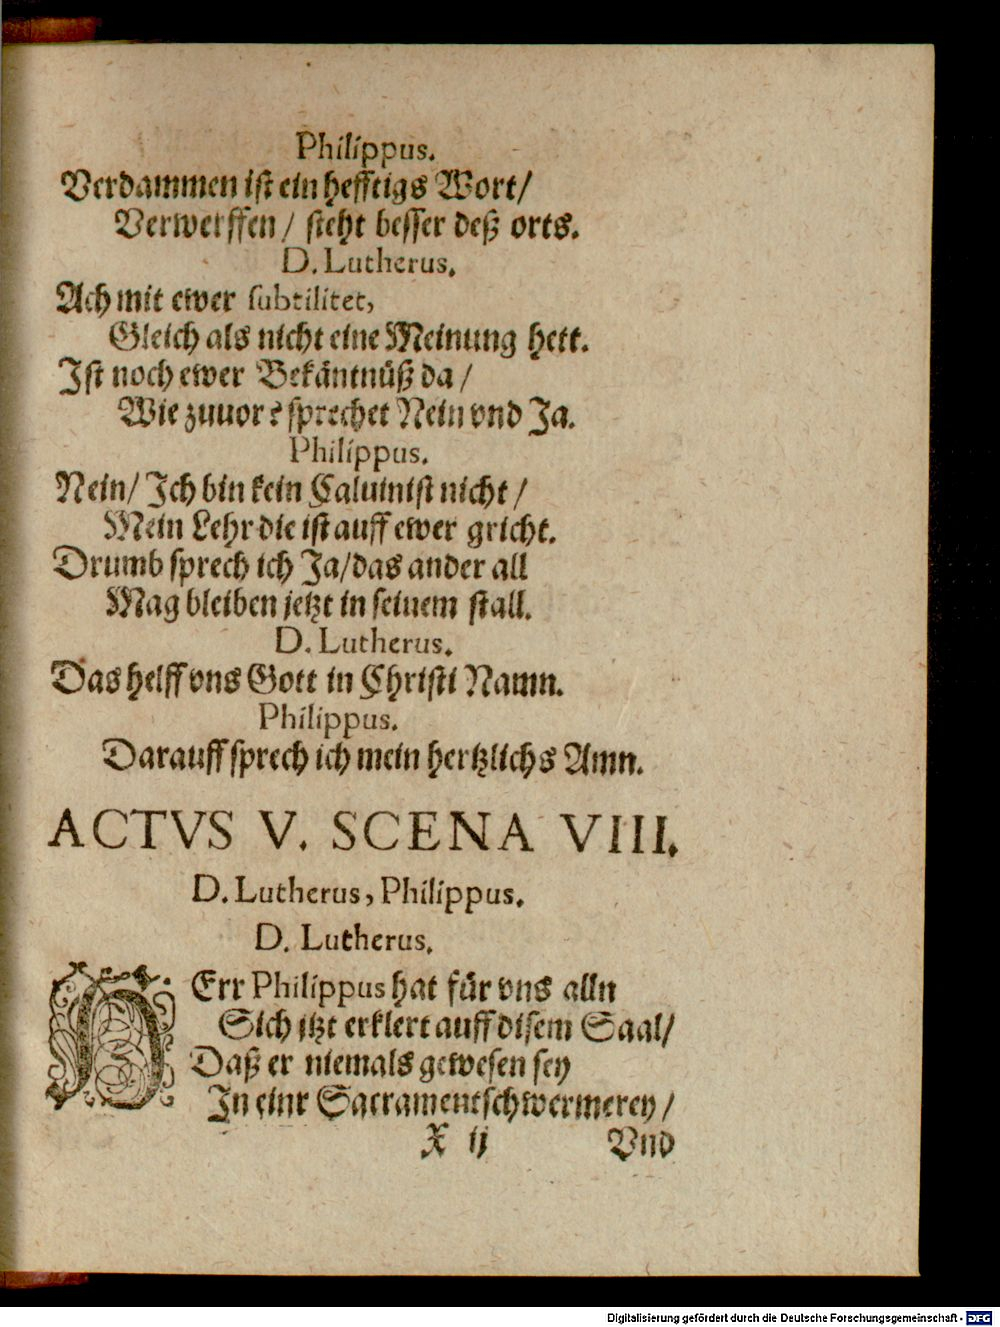 Philippus.
Verdammen ist ein hefftigs Wort/
Verwerffen / steht besser deß orts.
D. Lutherus.
Ach mit ewer subtilitet,
Gleich als nicht eine Meinung hett.
Ist noch ewer Bekäntnüß da /
Wie zuuor? sprechet Nein vnd Ja.
Philippus.
Nein/ Ich bin kein Caluinist nicht /
Mein Lehr die ist auff ewer gricht.
Drumb sprech ich Ja/das ander all
Mag bleiben jetzt in seinem stall.
D. Lutherus.
Das helff vns Gott in Christi Namn.
Philippus.
Darauff sprech ich mein hertzlichs Amn.
ACTVS V. SCENA VIII.
D. Lutherus, Philippus.
D. Lutherus.
HErr Philippus hat für vns alln
Sich jtzt erklert auff disem Saal/
Daß er niemals gewesen sey
In einr Sacramentschwermerey /
X ij Vnd
Digitalisierung gefördert durch die Deutsche Forschungsgemeinschaft - DFG